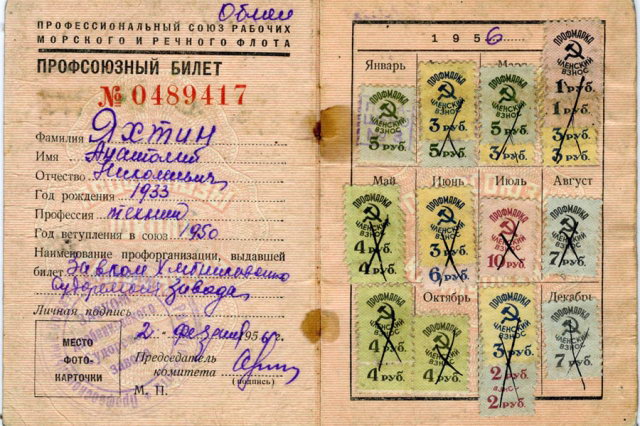 Обмен
ПРОФЕССИОНАЛЬНЫЙ СОЮЗ РАБОЧИХ
МОРСКОГО И РЕЧНОГО ФЛОТА
ПРОФСОЮЗНЫЙ БИЛЕТ
№ 0489417
Фамилия Яхтин
Имя Анатолий
Отчество Николаевич
Год рождения 1933
Профессия техник
Год вступления в союз 1950
Наименование профорганизации, выдавшей
билет Завком
завода
Личная подпись
2 195
МЕСТО
ФОТО-
КАРТОЧКИ
Председатель
комитета
(подпись)
М. П.
1956
Январь
Март
ПРОФМАРКА
ЧЛЕНСКИЙ
ВЗНОС
5 РУБ.
ПРОФМАРКА
ЧЛЕНСКИЙ
ВЗНОС
3 РУБ.
5 РУБ.
ПРОФМАРКА
ЧЛЕНСКИЙ
ВЗНОС
5 РУБ.
3 РУБ.
ПРОФМАРКА
ЧЛЕНСКИЙ
ВЗНОС
1 РУБ.
1 РУБ.
3 РУБ.
3 РУБ.
Май
Июнь
Июль
Август
ПРОФМАРКА
ЧЛЕНСКИЙ
ВЗНОС
4 РУБ.
4 РУБ.
ПРОФМАРКА
ЧЛЕНСКИЙ
ВЗНОС
3 РУБ.
6 РУБ.
ПРОФМАРКА
ЧЛЕНСКИЙ
ВЗНОС
10 РУБ.
ПРОФМАРКА
ЧЛЕНСКИЙ
ВЗНОС
7 РУБ.
Октябрь
Декабрь
ПРОФМАРКА
ЧЛЕНСКИЙ
ВЗНОС
4 РУБ.
4 РУБ.
ПРОФМАРКА
ЧЛЕНСКИЙ
ВЗНОС
4 РУБ.
ПРОФМАРКА
ЧЛЕНСКИЙ
ВЗНОС
3 РУБ.
2 РУБ.
ВЗНОС
2 РУБ.
ПРОФМАРКА
ЧЛЕНСКИЙ
ВЗНОС
7 РУБ.